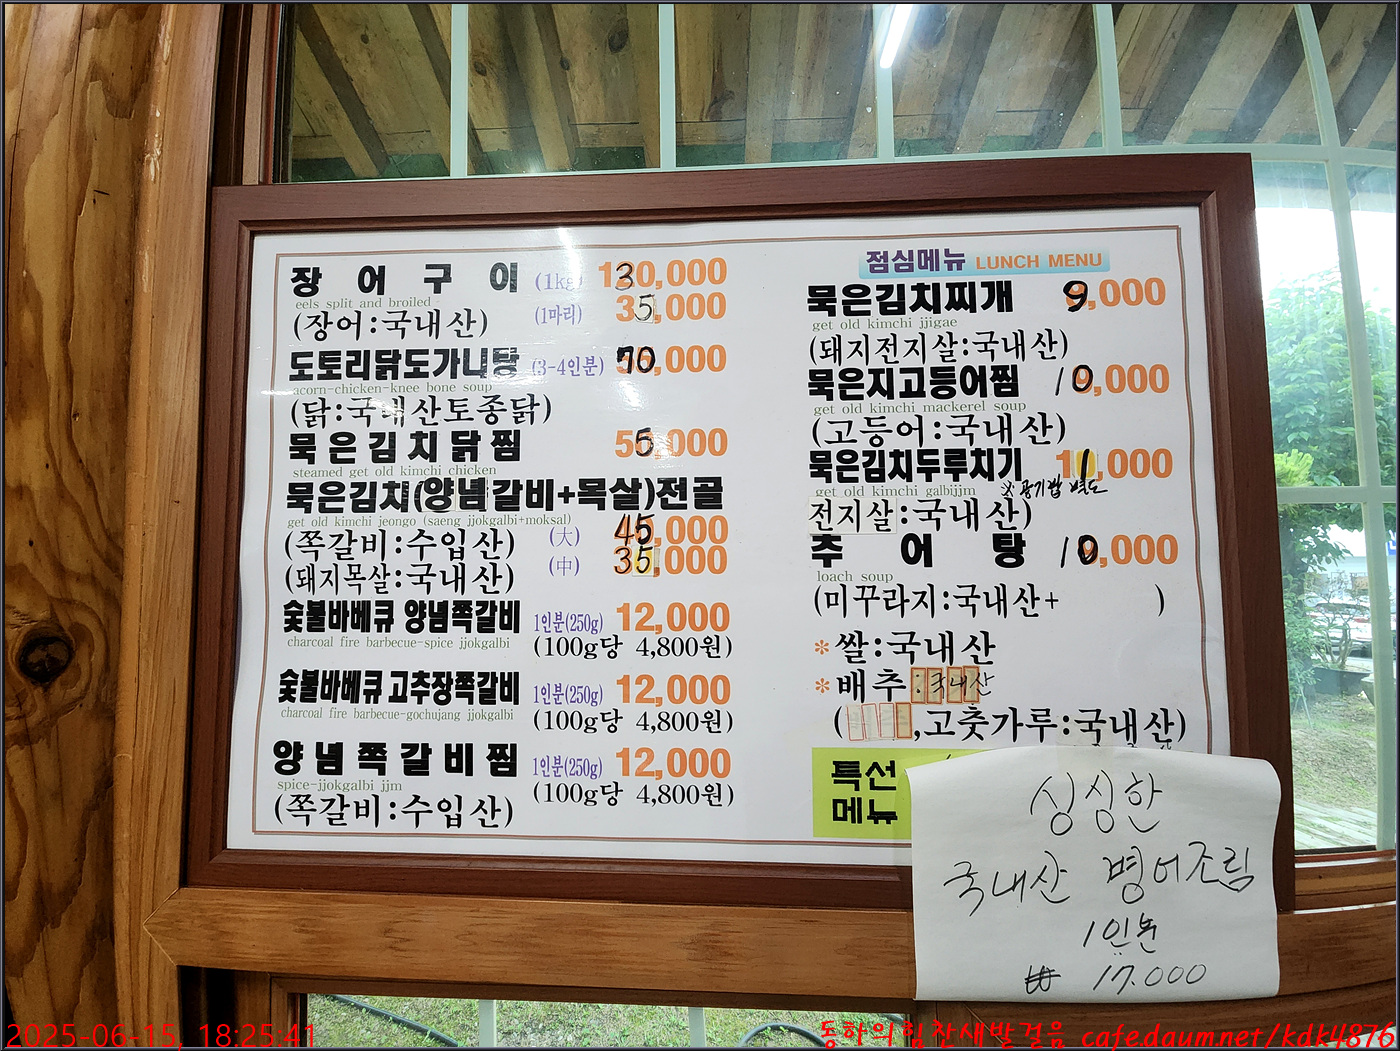 장어구이 (1kg) 130,000
eels split and broiled
(장어:국내산) (1마리) 35,000
도토리닭도가니탕 (3-4인분) 70,000
acorn-chicken-knee bone soup
(닭:국내산토종닭)
묵은김치닭찜 55,000
steamed get old kimchi chicken
묵은김치(양념갈비+목살)전골
get old kimchi jeongo (saeng jjokgalbi+moksal)
(쪽갈비:수입산) (大) 45,000
(돼지목살:국내산) (中) 35,000
숯불바베큐 양념쪽갈비 1인분(250g) 12,000
charcoal fire barbecue-spice jjokgalbi
(100g당 4,800원)
숯불바베큐 고추장쪽갈비 1인분(250g) 12,000
charcoal fire barbecue-gochujang jjokgalbi
(100g당 4,800원)
양념쪽갈비찜 1인분(250g) 12,000
spice-jjokgalbi jjm
(쪽갈비:수입산) (100g당 4,800원)
점심메뉴 LUNCH MENU
묵은김치찌개 9,000
get old kimchi jjigae
(돼지전지살:국내산)
묵은지고등어찜 10,000
get old kimchi mackerel soup
(고등어:국내산)
묵은김치두루치기 11,000
get old kimchi galbijjm
※공기밥 별도
전지살:국내산)
추어탕 10,000
loach soup
(미꾸라지:국내산+ )
*쌀:국내산
*배추:국내산
( ,고춧가루:국내산)
특선
메뉴
싱싱한
국내산 병어조림
1인분
₩ 17.000
2025-06-15, 18:25:41
동하의힘찬새발걸음 cafe.daum.net/kdk4876